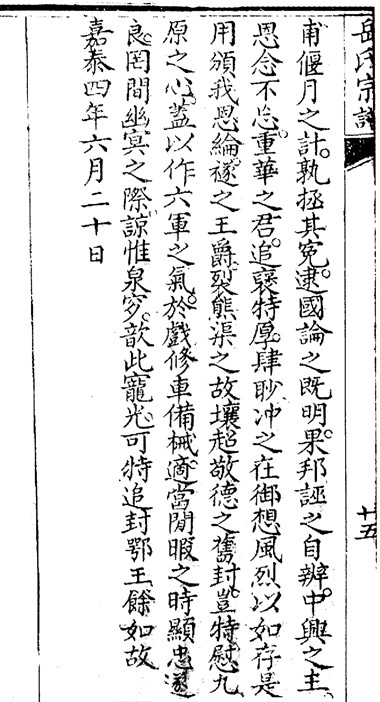 岳氏宗譜
十五
甫偃月之計。孰拯其冤。逮國論之既明。果邦誣之自辨。中興之主。
恩念不忘。重華之君。追褒特厚。肆眇冲之在御想風烈以如存是
用頒我恩綸。襚之王爵。裂熊渠之故壤超敬德之舊封。豈特慰九
原之心。蓋以作六軍之氣。於戲修車備械。適當閒暇之時顯忠遂
良。罔間幽冥之際。諒惟泉穸。歆此寵光。可特追封鄂王餘如故
嘉泰四年六月二十日